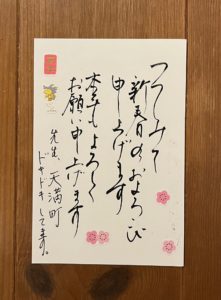 つつしみて
新春のおよろこび
申し上げます
本年もよろしく
お願い申上げます
先生、天満町
ドキドキしてます。